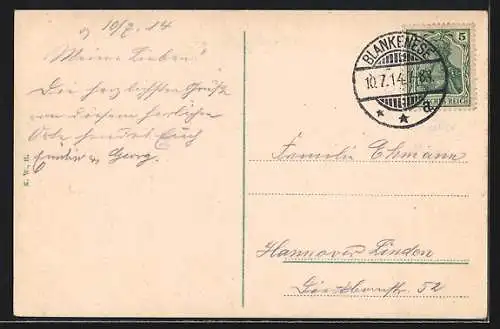 10/7. 14
Meine Lieben!
Die herzlichsten Grüße
von diesem herrlichen
Orte sendet Euch
Emilie u. Georg.
K. W. H.
BLANKENESE
10.7.14
5
REICH
Familie Ehmann
Hannover Linden
52